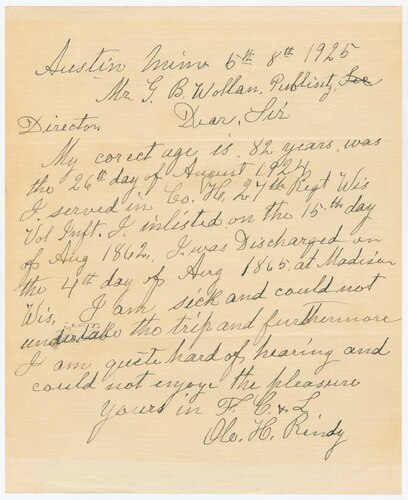 Austin Minn 6th 8th 1925
Mr. G. B. Wollan, Publisity, Sec
Director Dear, Sir
My corect age is 82 years, was
the 26th day of August 1924
I served in Co. H, 27th Regt Wis
Vol Inft. I inlisted on the 15th day
of Aug 1862. I was Discharged on
the 4th day of Aug 1865. at Madison
Wis, I am sick and could not
undirtake the trip and furthermore
I am quete hard of hearing and
could not enjoye the pleasure
yours in F. C. & L
Ole. H. Rindy